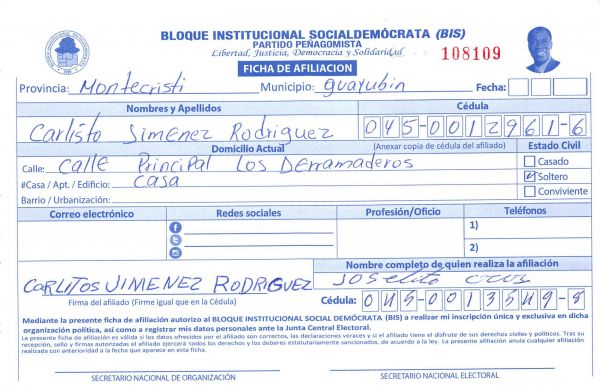 BLOQUE INSTITUCIONAL SOCIALDEMÓCRATA (BIS)
PARTIDO PEÑAGOMISTA
Libertad, Justicia, Democracia y Solidaridad
108109
FICHA DE AFILIACION
Provincia: Montecristi Municipio: guayubin Fecha:
Nombres y Apellidos Cédula
Carlisto Simenez Rodriguez 045-0012961-6
Domicilio Actual (Anexar copia de cédula del afiliado) Estado Civil
Calle: calle Principal Los Derramaderos Casado
#Casa / Apt. / Edificio: casa Soltero
Barrio / Urbanización: Conviviente
Correo electrónico Redes sociales Profesión/Oficio Teléfonos
1)
2)
Nombre completo de quien realiza la afiliación
CARLITOS JIMENEZ RODRIGUEZ Joselito cruz
Firma del afiliado (Firme igual que en la Cédula) Cédula: 045-0013549-8
Mediante la presente ficha de afiliación autorizo al BLOQUE INSTITUCIONAL SOCIAL DEMÓCRATA (BIS) a realizar mi inscripción única y exclusiva en dicha
organización política, así como a registrar mis datos personales ante la Junta Central Electoral.
La presente ficha de afiliación es válida si los datos ofrecidos por el afiliado son correctos, las declaraciones veraces y si el afiliado tiene el disfrute de sus derechos civiles y políticos. Tras su
recepción, sello y firmas autorizadas el afiliado ejercerá todos los derechos y los deberes estatutariamente sancionados, de acuerdo a la ley. La presente afiliación anula cualquier afiliación
realizada con anterioridad a la fecha que aparece en esta ficha.
SECRETARIO NACIONAL DE ORGANIZACIÓN SECRETARIO NACIONAL ELECTORAL